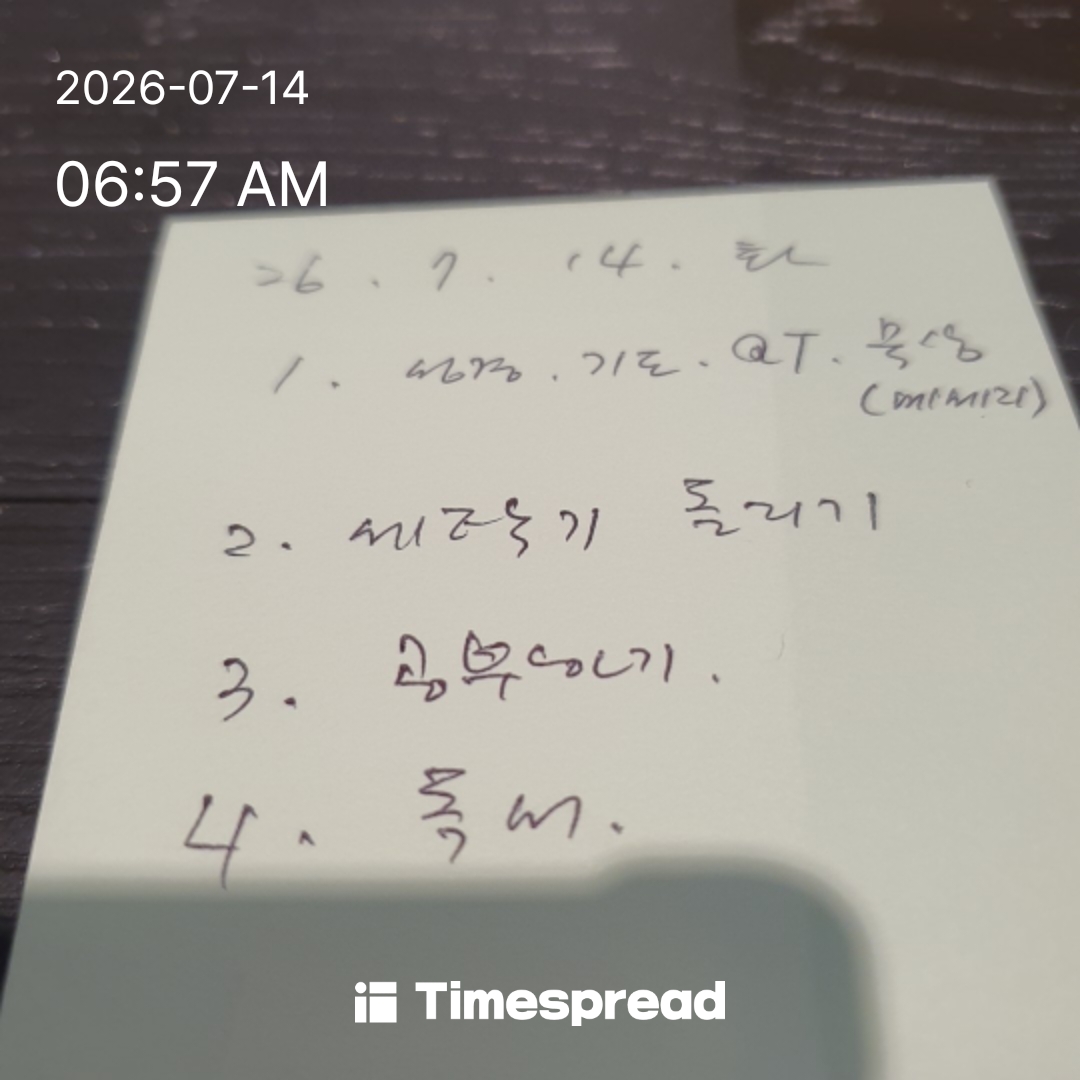 2026-07-14
06:57 AM
26. 7. 14. 화
1. 성경. 기도. QT. 묵상
2. 세탁기 돌리기
3. 공부하기.
4. 독서.
Timespread